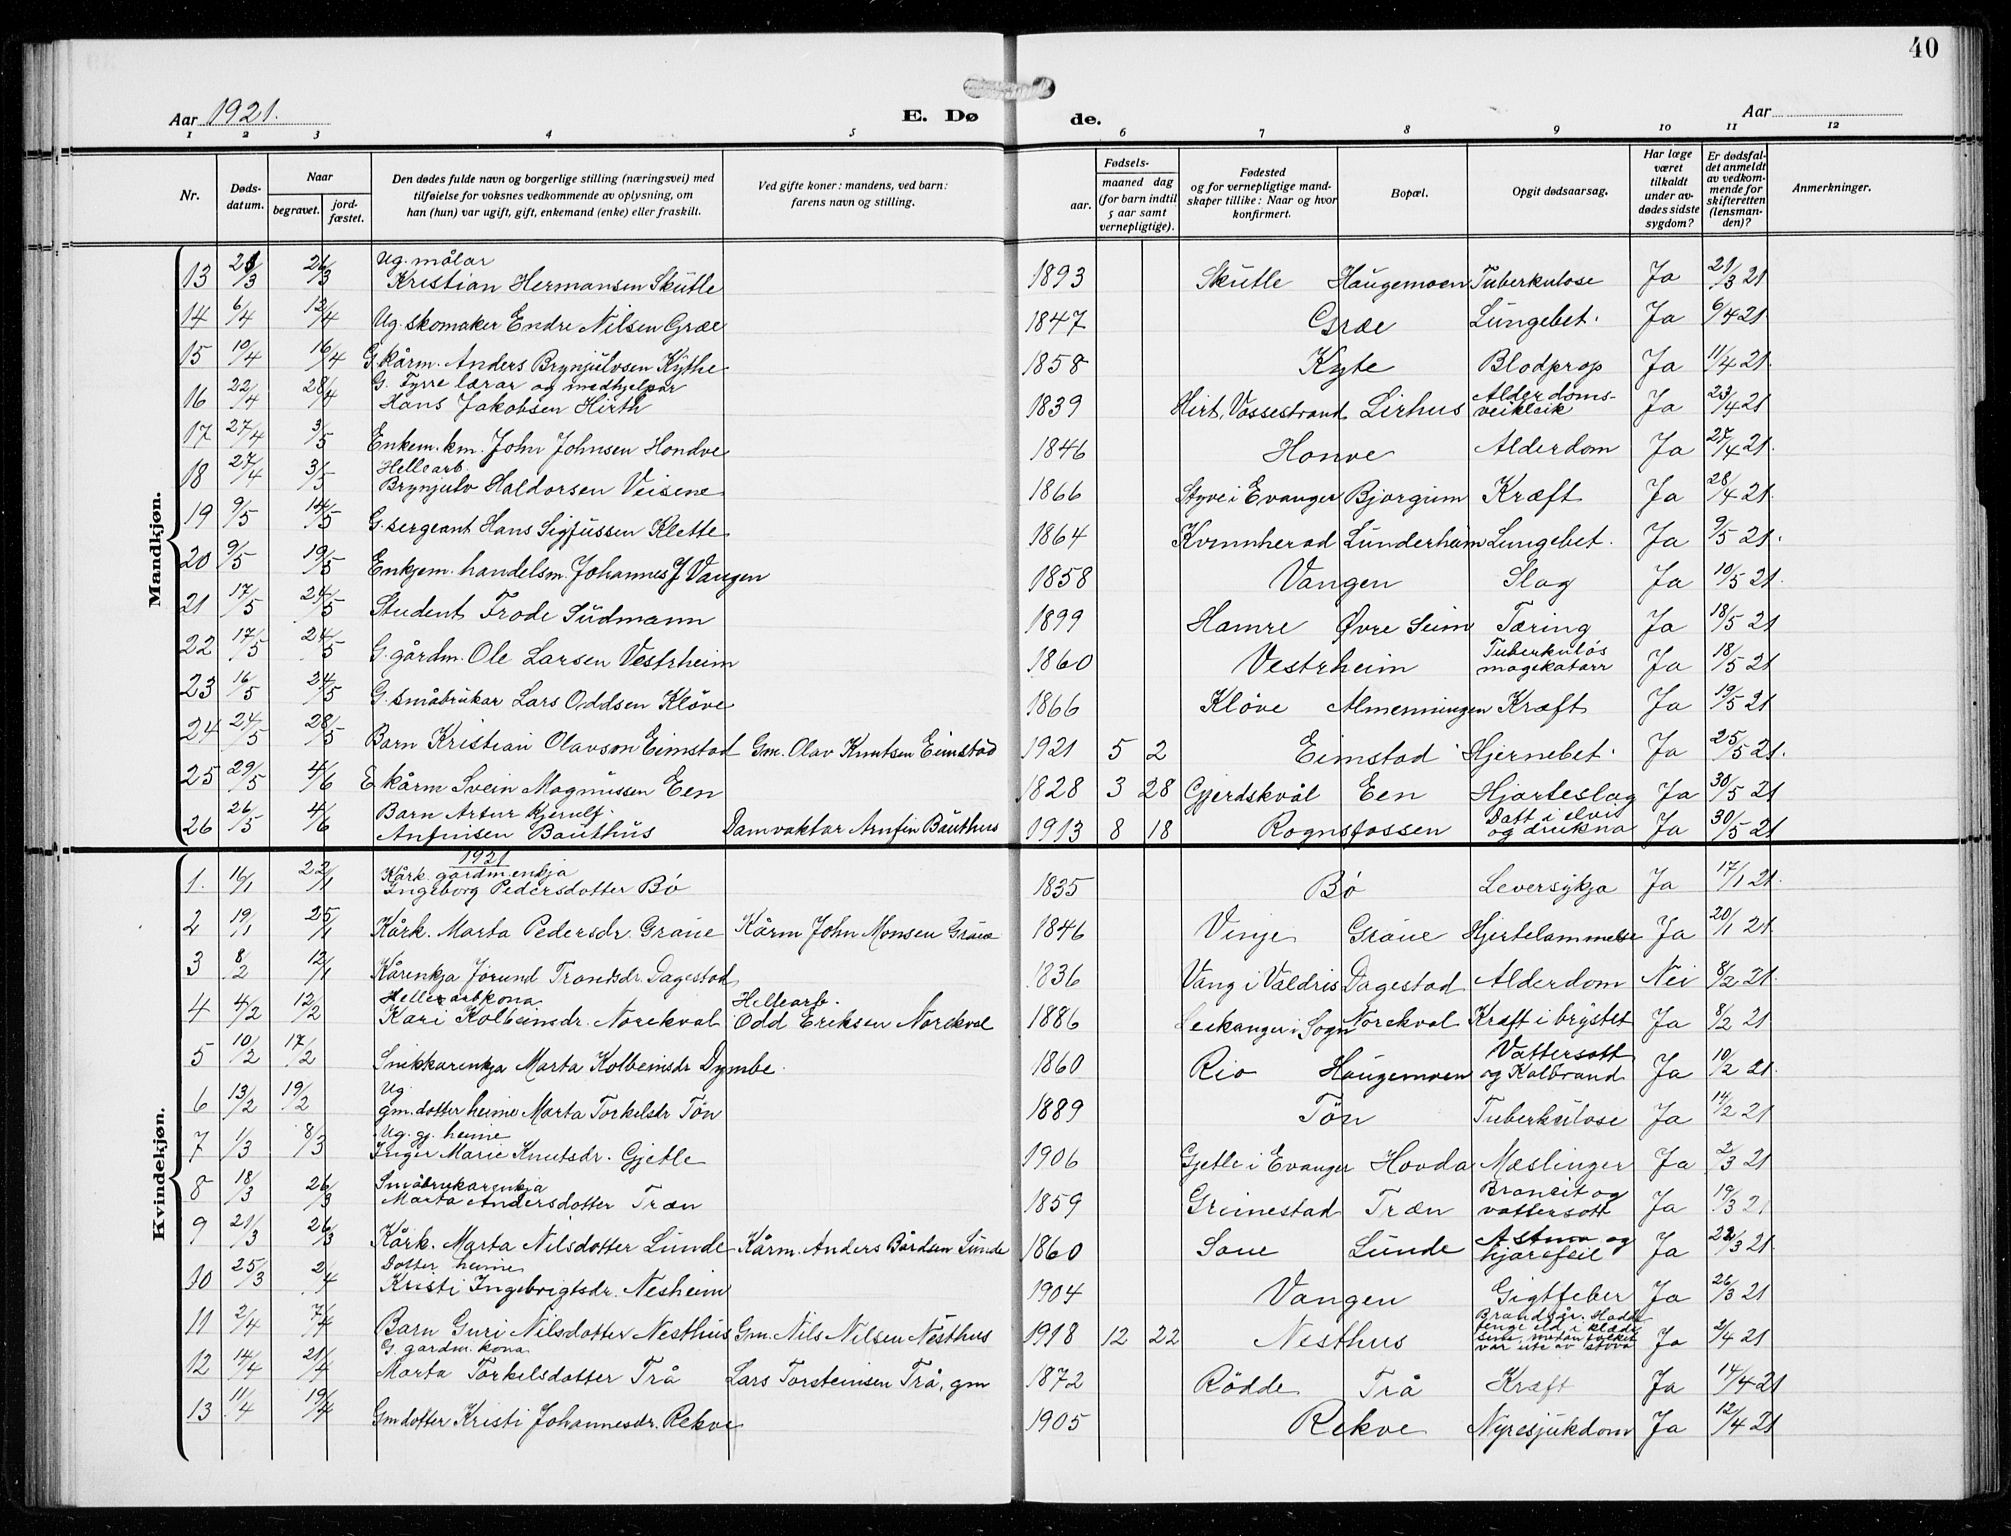 40
Aar 1921. E. Dø de. Aar
1 2 3 4 5 6 7 8 9 10 11 12
Nr. Døds-datum. Naar begravet. jord-fæstet. Den dødes fulde navn og borgerlige stilling (næringsvei) med tilføielse for voksnes vedkommende av oplysning, om han (hun) var ugift, gift, enkemand (enke) eller fraskilt. Ved gifte koner: mandens, ved barn: farens navn og stilling. Fødsels- aar. maaned dag (for barn indtil 5 aar samt vernepligtige). Fødested og for vernepligtige mand-skaper tillike: Naar og hvor konfirmert. Bopæl. Opgit dødsaarsag. Har læge været tilkaldt under av-dødes sidste sygdom? Er dødsfal-det anmeldt av vedkom-mende for skifteretten (lensman-den)? Anmerkninger.
Mandkjøn.
13 21/3 26/3 Ug. målar Kristian Hermansen Skutle 1893 Skutle Haugemoen Tuberkulose Ja 21/3 21
14 6/4 12/4 Ug. skomaker Endre Nilsen Græe 1847 Græe Lungebet. Ja 6/4 21
15 10/4 16/4 G. kårm. Anders Brynjulvsen Kythe 1858 Kyte Blodprop Ja 11/4 21.
16 22/4 28/4 G. Fyrre lærar og medhjelpar Hans Jakobsen Hirth 1839 Hirt, Vossestrand Lirhus Alderdoms-veikleik Ja 23/4 21
17 27/4 3/5 Enkem. km. John Johnsen Hondve 1846 Honve Alderdom Ja 27/4 21.
18 27/4 3/5 Hellearb. Brynjulv Haldorsen Veisene 1866 Styve i Evanger Bjorgum Kræft Ja 28/4 21.
19 9/5 14/5 G. sergeant Hans Sigfussen Klette 1864 Kvinnherad Lunderheim Lungebet. Ja 9/5 21.
20 9/5 19/5 Enkjem. handelsm. Johannes J Vangen 1858 Vangen Slag Ja 10/5 21.
21 17/5 24/5 Student Frode Sudmann 1899 Hamre Øvre Seim Tæring Ja 18/5 21
22 17/5 24/5 G. gårdm. Ole Larsen Vestrheim 1860 Vestrheim Tuberkuløs magekatarr Ja 18/5 21
23 16/5 24/5 G. småbrukar Lars Oddsen Kløve 1866 Kløve Almenningen Kræft Ja 19/5 21
24 24/5 28/5 Barn Kristian Olavson Eimstad Gm. Olav Knutsen Eimstad 1921 5 2 Eimstad Hjernebet. Ja 25/5 21.
25 29/5 4/6 E kårm Svein Magnussen Een 1828 3 28 Gjerdskvål Een Hjarteslag Ja 30/5 21
26 26/5 4/6 Barn Artur Kjerulf Anfinsen Bauthus Damvaktar Arnfin Bauthus 1913 8 18 Rognsfossen Datt i elvi og drukna Ja 30/5 21
Kvindekjøn.
1921
1. 16/1 22/1 Kårk. gardmenkja Ingeborg Pedersdotter Bø 1835 Bø Leversykja Ja 17/1 21.
2 19/1 25/1 Kårk. Marta Pedersdr. Graue Kårm John Monsen Graue 1846 Vinje Graue Hjertelammelse Ja 20/1 21.
3 8/2 12/1 Kårenkja Jorund Trondsdr. Dagestad 1836 Vang i Valdris Dagestad Alderdom Nei 8/2 21.
4 4/2 12/2 Hellearbkona Kari Kolbeinsdr. Norekval Hellearb. Odd Eriksen Norekval 1886 Leikanger i Sogn Norekval Kræft i brystet Ja 8/2 21
5 10/2 17/2 Snikkarenkja Marta Kolbeinsdr Dymbe. 1860 Rio Haugemoen Vattersott og Kolbrand Ja 10/2 21.
6 13/2 19/2 Ug gm. dotter heime Marta Torkelsdr Tøn 1889 Tøn Tuberkulose Ja 14/2 21
7 1/3 8/3 Ug. gj. heime Inger Marie Knutsdr. Gjetle 1906 Gjetle i Evanger Hovda Mæslinger Ja 2/3 21
8 18/3 26/3 Småbrukarenkja Marta Andersdotter Træn 1859 Grimestad Træn Bronkit og vattersott Ja 19/3 21
9 21/3 26/3 Kårk. Marta Nilsdotter Lunde Kårm. Anders Bårdsen Lunde 1860 Saue Lunde Astma og hjartefeil Ja 22/3 21.
10 25/3 2/4 Dotter heime Kristi Ingebrigtsdr. Nesheim 1904 Vangen Gigtfeber Ja 26/3 21
11 2/4 7/4 Barn Guri Nilsdotter Nesthus Gm. Nils Nilsen Nesthus 1918 12 22 Nesthus Brandsår. Hadde fenge eld i klædi sine, medan folket var ute av stova Ja 2/4 21
12 14/4 21/4 G. gardm. kona Marta Torkelsdotter Trå Lars Torsteinsen Trå, gm 1872 Rødde Trå Kræft Ja 14/4 21
13 11/4 19/4 Gmdotter Kristi Johannesdr. Rekve 1905 Rekve Nyresjukdom Ja 12/4 21